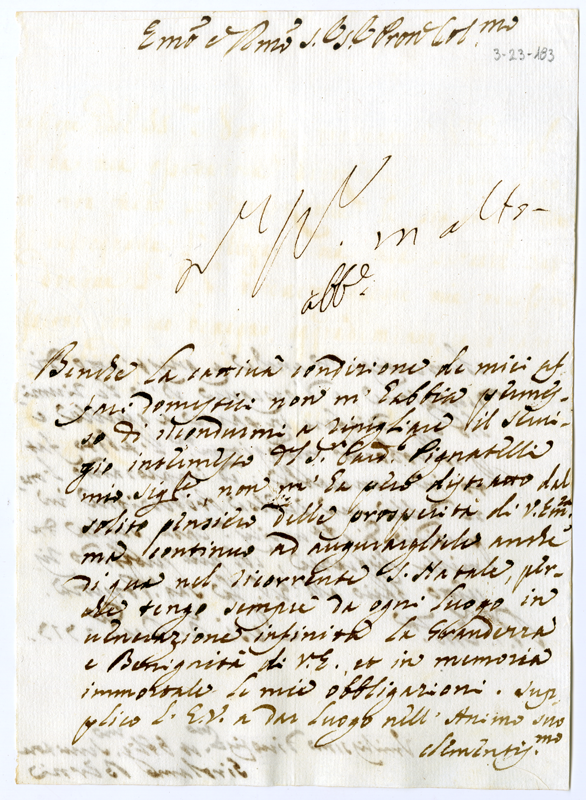 Emo e Rmo s.r s.r Pron Col.mo
3-23-183
abb.e
Benche la cattiva condizione de miei af-
fari domestici non m'habbia permes-
so di ricondurmi a ripigliare il servi-
gio intermesso del S.r Card. Pignatelli
mio Sig.re, non m'ha però distratto dal
solito pensiero delle prosperità di V. Em.
ma continuo ad augurargliele anche
di qua nel ricorrente S. Natale, per-
che tengo sempre da ogni luogo in
venerazione infinita la Grandezza
e Benignità di V.E. et in memoria
immortale le mie obbligazioni. Sup-
plico l'E.V. a dar luogo nell'Animo suo
clementis.mo